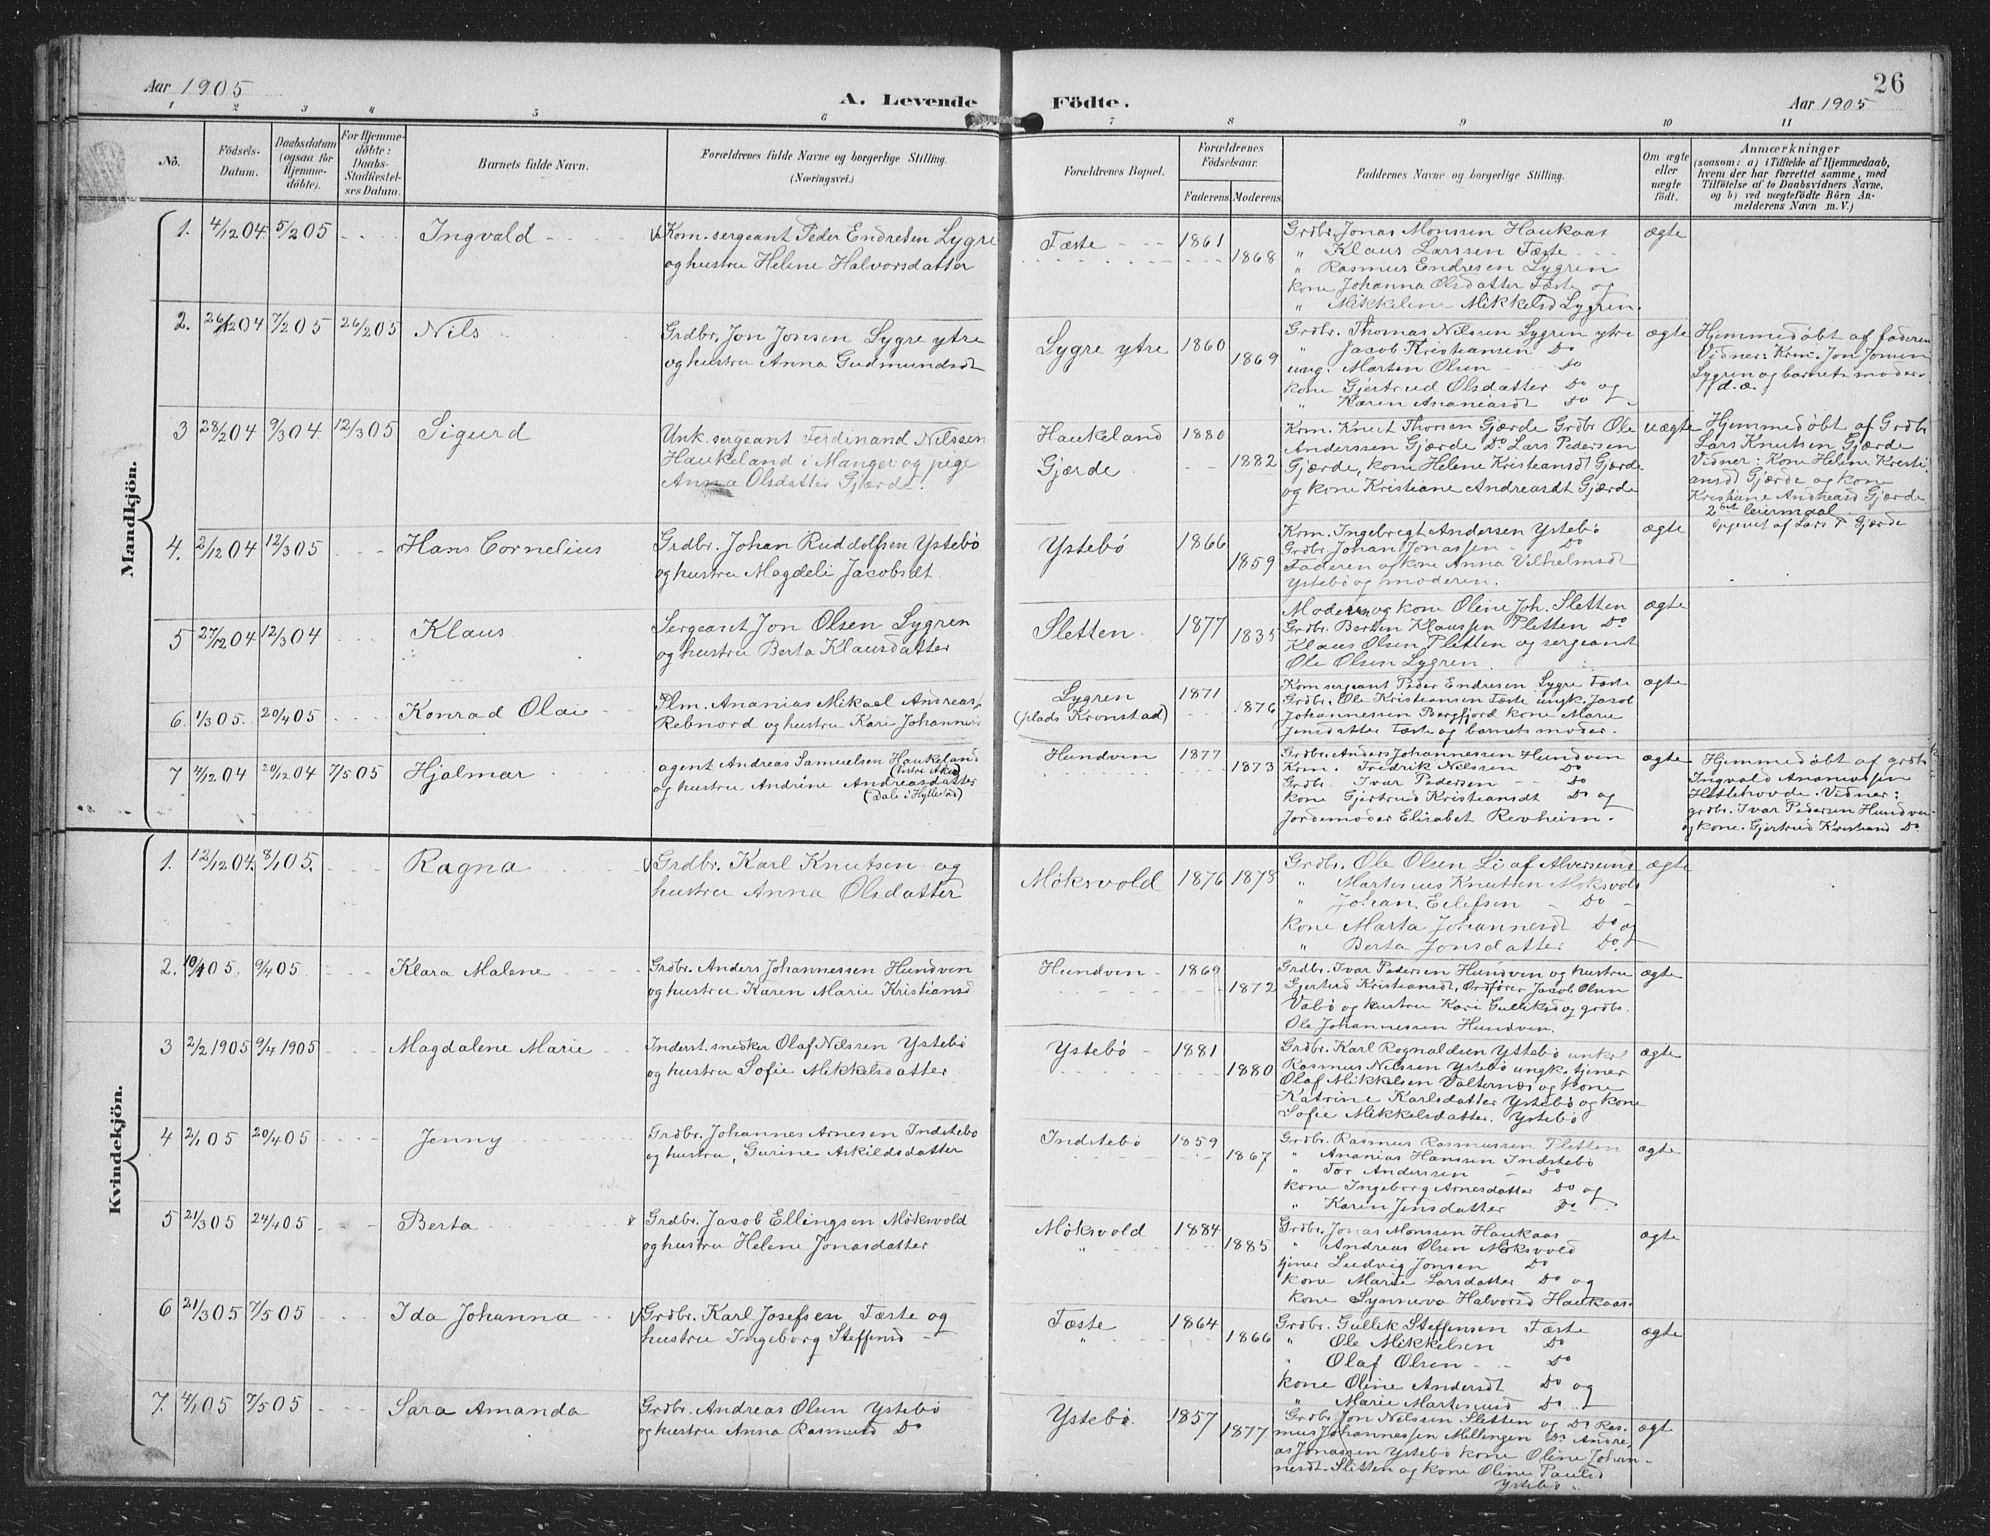 26
Aar 1905
A. Levende
Födte.
Aar 1905
1 2 3 4 5 6 7 8 9 10 11
No.
Födsels-
Datum.
Daabsdatum
(ogsaa for
Hjemme-
döbte).
For Hjemme-
döbte:
Daabs-
Stadfæstel-
ses Datum.
Barnets fulde Navn.
Forældrenes fulde Navne og borgerlige Stilling.
(Næringsvei.)
Forældrenes Bopæl.
Forældrenes
Födselsaar.
Faderens Moderens
Faddernes Navne og borgerlige Stilling.
Om ægte
eller
uægte
födt.
Anmærkninger
(saasom: a) i Tilfælde af Hjemmedaab,
hvem der har forrettet samme, med
Tilföielse af to Daabsvidners Navne.
og b) ved uægtefödte Börn An-
melderens Navn m. V.)
Mandkjön.
1. 4/12 04 5/2 05 Ingvald
Kom. sergeant Peder Endresen Lygre
og hustru Helene Halvorsdatter
Fæste 1861 1868
Grdbr. Jonas Monssen Haukaas
" Klaus Larssen Fæste
" Rasmus Endresen Lygren
kone Johanna Olsdatter Fæste og
" Mikkeline Mikkelsd Lygren.
ægte
2. 26/12 04 7/2 05 26/2 05 Nils
Grdbr. Jon Jonsen Lygre ytre
og hustru Anna Gudmundsdt
Lygre ytre 1860 1869
Grdbr. Thomas Nilssen Lygren ytre
" Jacob Kristiansen Do
ung. Marten Olsen Do
kone Gjertrud Olsdatter Do og
" Karen Ananiasdt Do
ægte
Hjemmedøbt af faderen
Vidner: Kom. Jon Jonsen
Lygren og barnets moder
d. æ.
3 28/2 04 9/3 04. 12/3 05 Sigurd
Unk. sergeant Ferdinand Nilssen
Haukeland i Manger og pige
Anna Olsdatter Gjærde.
Haukeland
Gjærde
1880 1882
Kom. Knut Thorsen Gjærde Grdbr Ole
Anderssen Gjærde Do. Lars Pedersen
Gjærde, kone Helene Kristiansdt Gjærde
og kone Kristiane Andreasdt Gjærde
uægte
Hjemmedøbt af Grdbr
Lars Knutsen Gjærde
Vidner: Kone Helene Kristi-
ansdt Gjærde og kone
Kristiane Andreasd Gjærde
2det leiermaal
Opgivet af Lars P Gjærde
4. 2/12 04 12/3 05 Hans Cornelius
Grdbr. Johan Ruddolfsen Ystebø
og hustru Magdeli Jacobsdt.
Ystebø 1866 1859
Kom. Ingebregt Andersen Ystebø
Grdbr. Johan Jonassen Do
Faderen og kone Anna Vilhelmsdt
Ystebø og moderen.
ægte
5 27/12 04 12/3 04 Klaus
Sergeant Jon Olsen Lygren
og hustru Berta Klausdatter
Sletten. 1877 1835
Moderen og kone Oline Joh. Sletten
Grdbr. Berten Klaussen Sletten Do
Klaus Olsen Sletten og sergeant
Ole Olsen Lygren.
ægte
6. 1/3 05. 20/4 05 Konrad Olai
Plm. Ananias Mikael Andreas
Rebnord og hustru Kari Johannes
Lygren
(plads Kronstad)
1871 1876
Kom sergeant Peder Endresen Lygre Fæste
Grdbr. Ole Kristiansen Fæste ungk. Jacob
Johannessen Bergfjord kone Marie
Jensdatter Fæste og barnets moder.
ægte
7 4/12 04 20/12 04 7/5 05 Hjalmar
agent Andreas Samuelsen Haukeland
og hustru Andrine Andreasdatter
(Dale i Hyllestad)
Hundven 1877 1873
Grdbr. Anders Johannessen Hundven
Kom. Fredrik Nilssen Do
Grdbr. Ivar Pedersen Do
kone Gjertrud Kristiansdt Do og
Jordemoder Elisabet Revheim.
ægte
Hjemmedøbt af grdbr
Ingvald Ananiassen
Hetlehovde. Vidner:
grdbr. Ivar Pedersen Hundven
og kone. Gjertrud Kristiansd Do
Kvindekjön.
1. 12/12 04. 8/1 05. Ragna
Grdbr. Karl Knutsen og
hustru Anna Olsdatter
Møksvold 1876 1878
Grdbr. Ole Olsen Li af Alversund
" Martinus Knutsen Møksvold
" Johan Eilefsen Do
kone Marta Johannesdt Do og
" Berta Jonsdatter Do.
ægte
2. 10/1 05. 9/4 05 Klara Malene
Grdbr. Anders Johannessen Hundven
og hustru Karen Marie Kristiansd
Hundven 1869 1872
Grdbr. Ivar Pedersen Hundven og hustru
Gjertrud Kristiansdt, Ordfører Jacob Olsen
Vabø og hustru Kari Gulliksd og grdbr.
Ole Johannessen Hundven.
ægte
3 2/2 1905 9/4 1905 Magdalene Marie
Inderst. snedker Olaf Nilssen Ystebø
og hustru Sofie Mikkelsdatter
Ystebø 1881 1880
Grdbr. Karl Rognaldsen Ystebø unk.
Rasmus Nilssen Ystebø ungk. tjener
Olaf Mikkelsen Valternæs og kone
Katrine Karlsdatter Ystebø og kone
Sofie Mikkelsdatter. Ystebø
ægte
4 2/1 05 20/4 05 Jenny
Grdbr. Johannes Arnesen Indstebø
og hustru, Gurine Askildsdatter
Indstebø 1859 1867
Grdbr. Rasmus Rasmussen Sletten
" Ananias Hanssen Indstebø
" Tor Anderssen Do
kone Ingeborg Arnesdatter Do og
" Karen Jensdatter Do
ægte
5 21/3 05 24/4 05 Berta
Grdbr. Jacob Ellingsen Møksvold
og hustru Helene Jonasdatter
Møksvold 1884 1885
Grdbr. Jonas Monssen Haukaas
" Andreas Olsen Møksvold
tjener Ludvig Jonsen Do
kone Marie Larsdatter Do og
kone Synneva Halvorsd Haukaas.
ægte
6 21/3 05 7/5 05 Ida Johanna
Grdbr. Karl Josefsen Fæste og
hustru Ingeborg Steffensd
Fæste 1864 1866
Grdbr. Gullik Steffensen Fæste
" Ole Mikkelsen Do
" Olaf Olsen Do
kone Oline Andersdt Do og
" Marie Martinusd Do
ægte
7. 4/1 05 7/5 05 Sara Amanda
Grdbr. Andreas Olsen Ystebø
og hustru Anna Rasmusd Do
Ystebø. 1857 1877
Grdbr. Jon Nilssen Sletten og Do Ras-
mus Johannessen Millingen Do Andre-
as Jonassen Ystebø kone Oline Johan-
nesdt. Sletten og kone Oline Paulsd
Ystebø
ægt